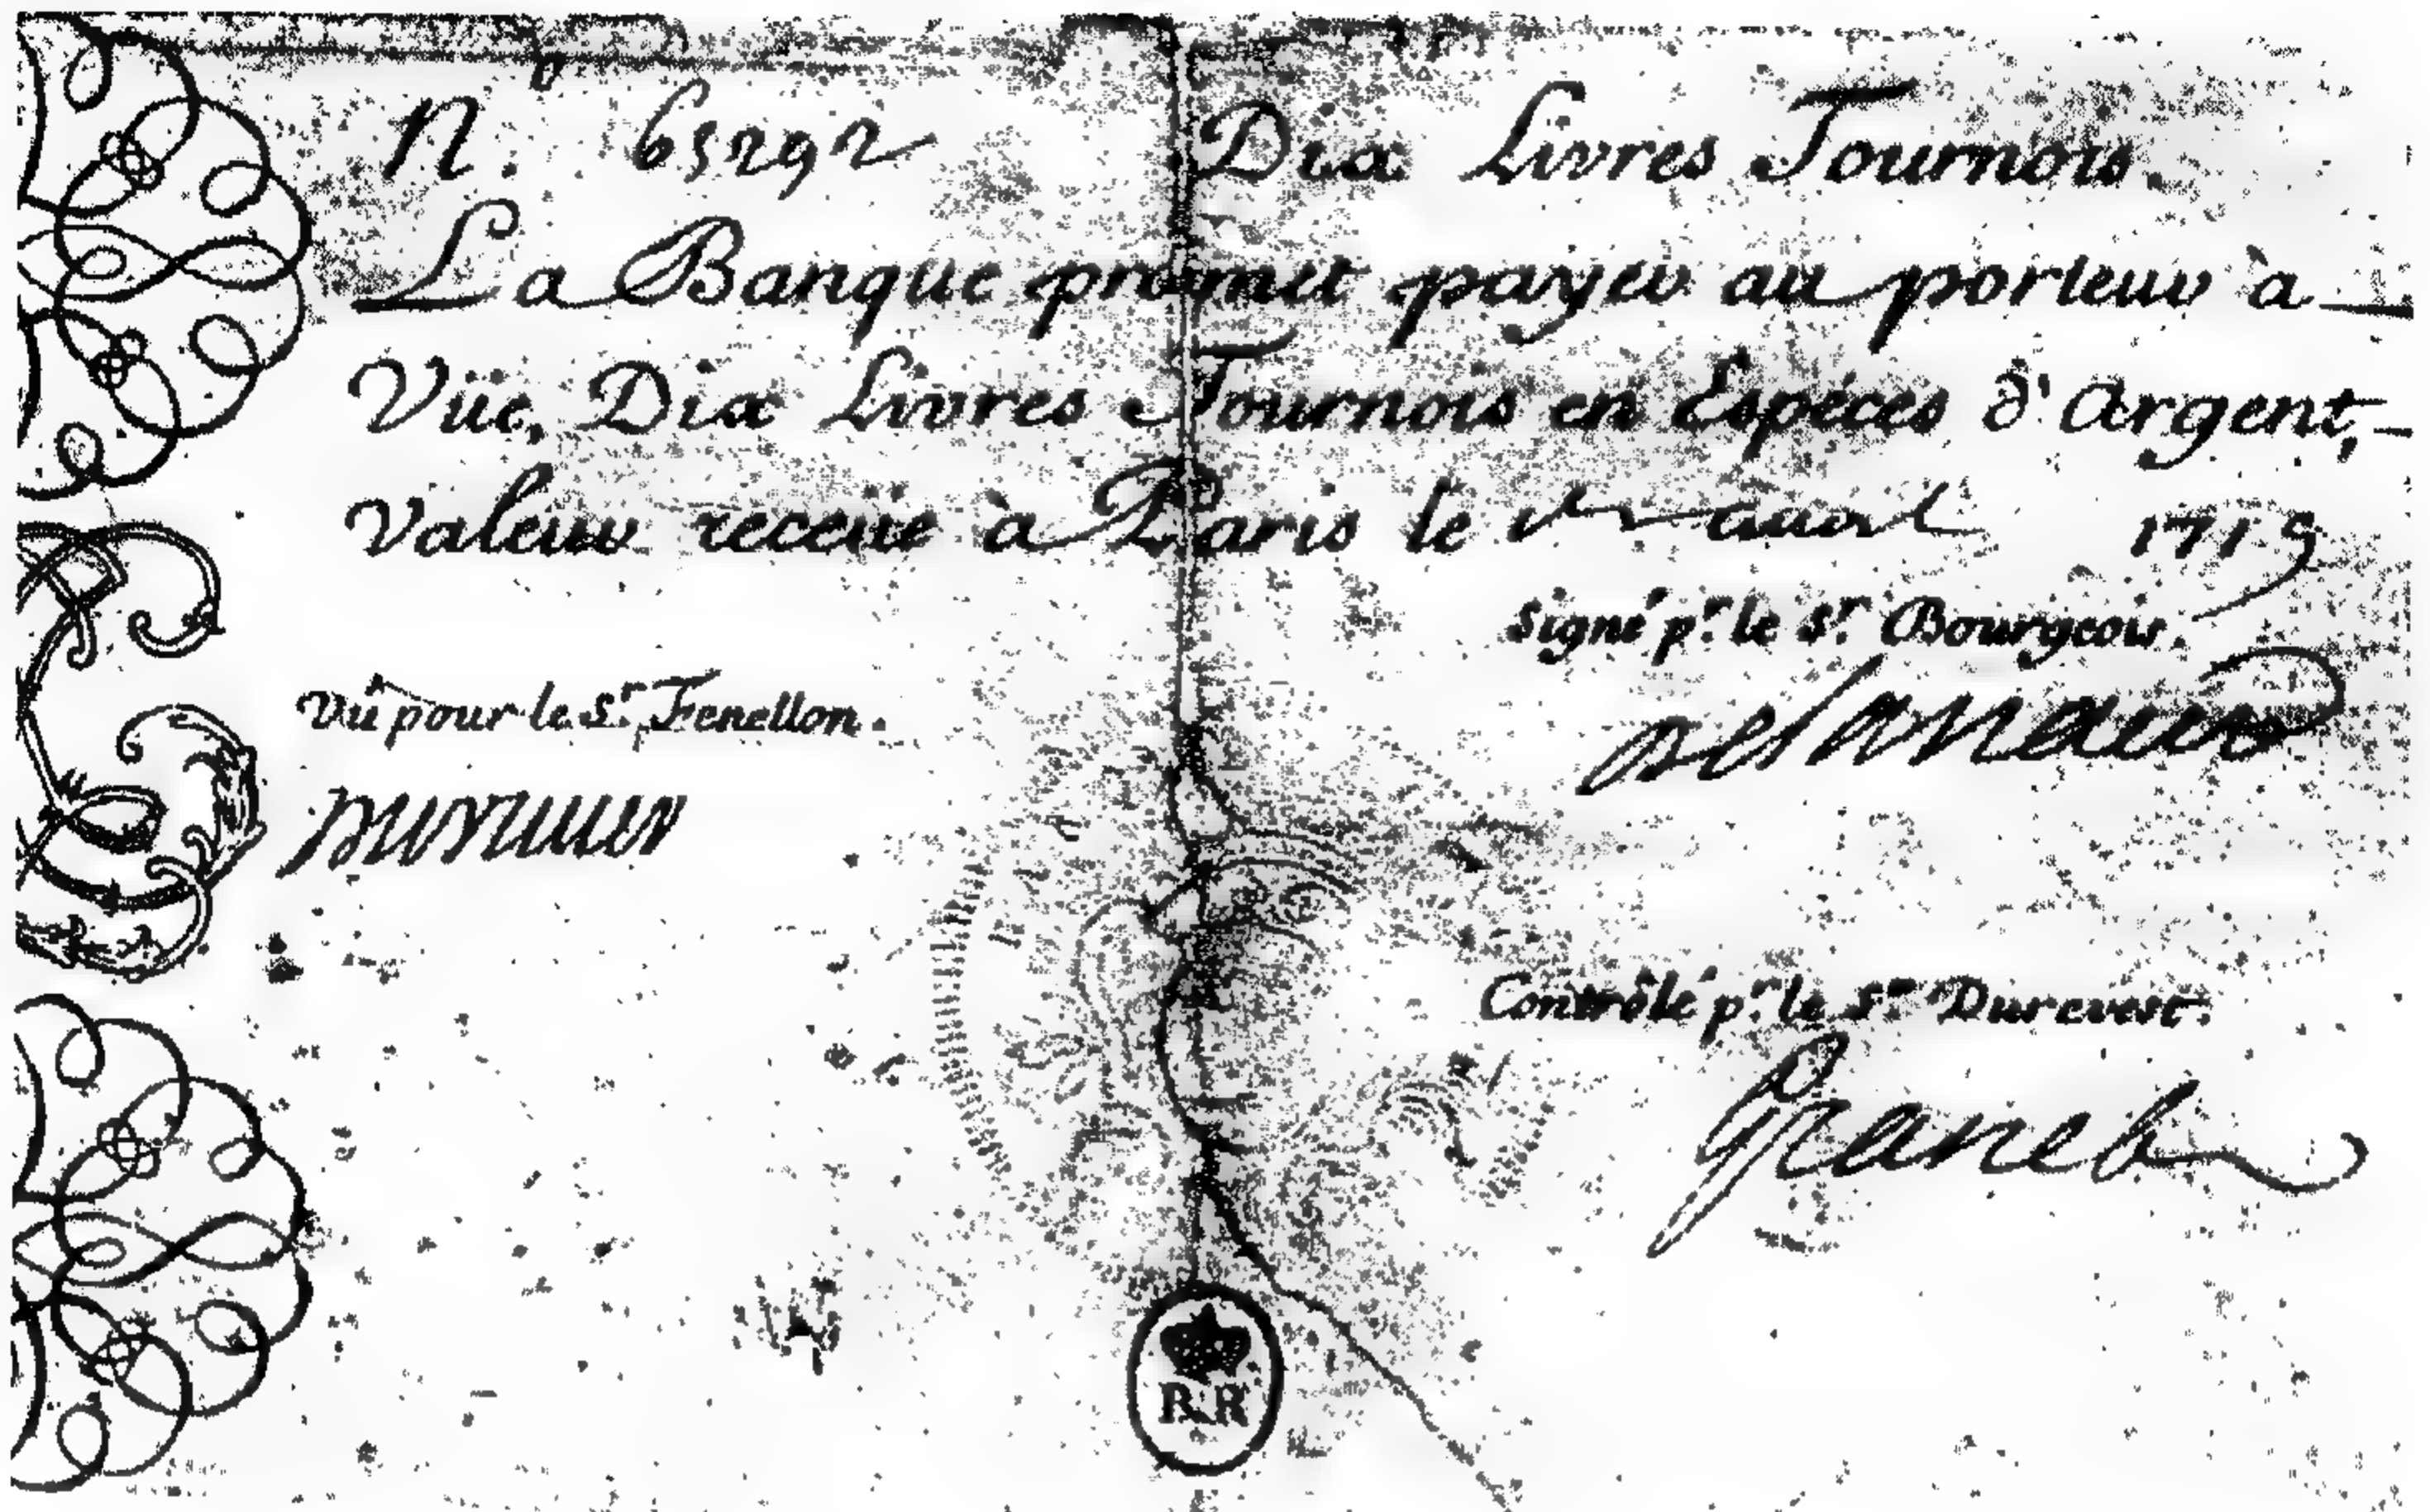 N.º 65292 Dix Livres Tournois.
La Banque promet payer au porteur à
Vüe, Dix Livres Tournois en Espéces d'Argent,
valeur receüe à Paris le avril 1719
Signé p.r le S.r Bourgeois.
Vû pour le S.r Fenellon.
Contrôlé p.r le S.r Durevest.
Granet
RR